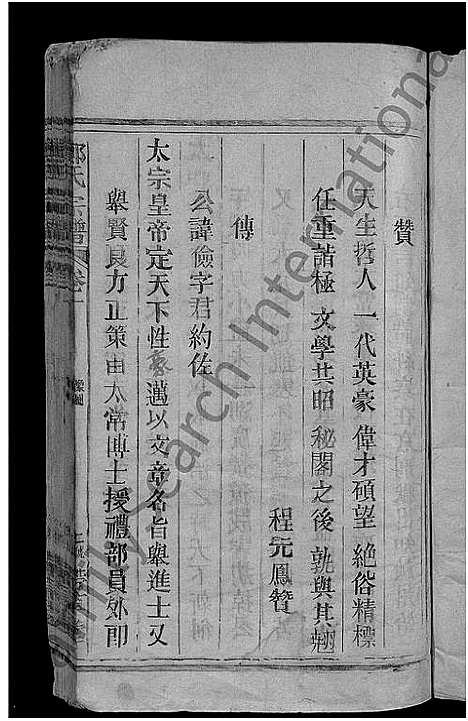 贊
天生哲人 一代英豪 偉才碩望 絕俗精標
任重誥極 文學其昭 秘閣之後 孰與其
程元鳳贊
傳
公諱儉字君約佐
太宗皇帝定天下性豪邁以文章名旨舉進士又
舉賢良方正策由太常博士授禮部員外郎
氏宗譜 卷一